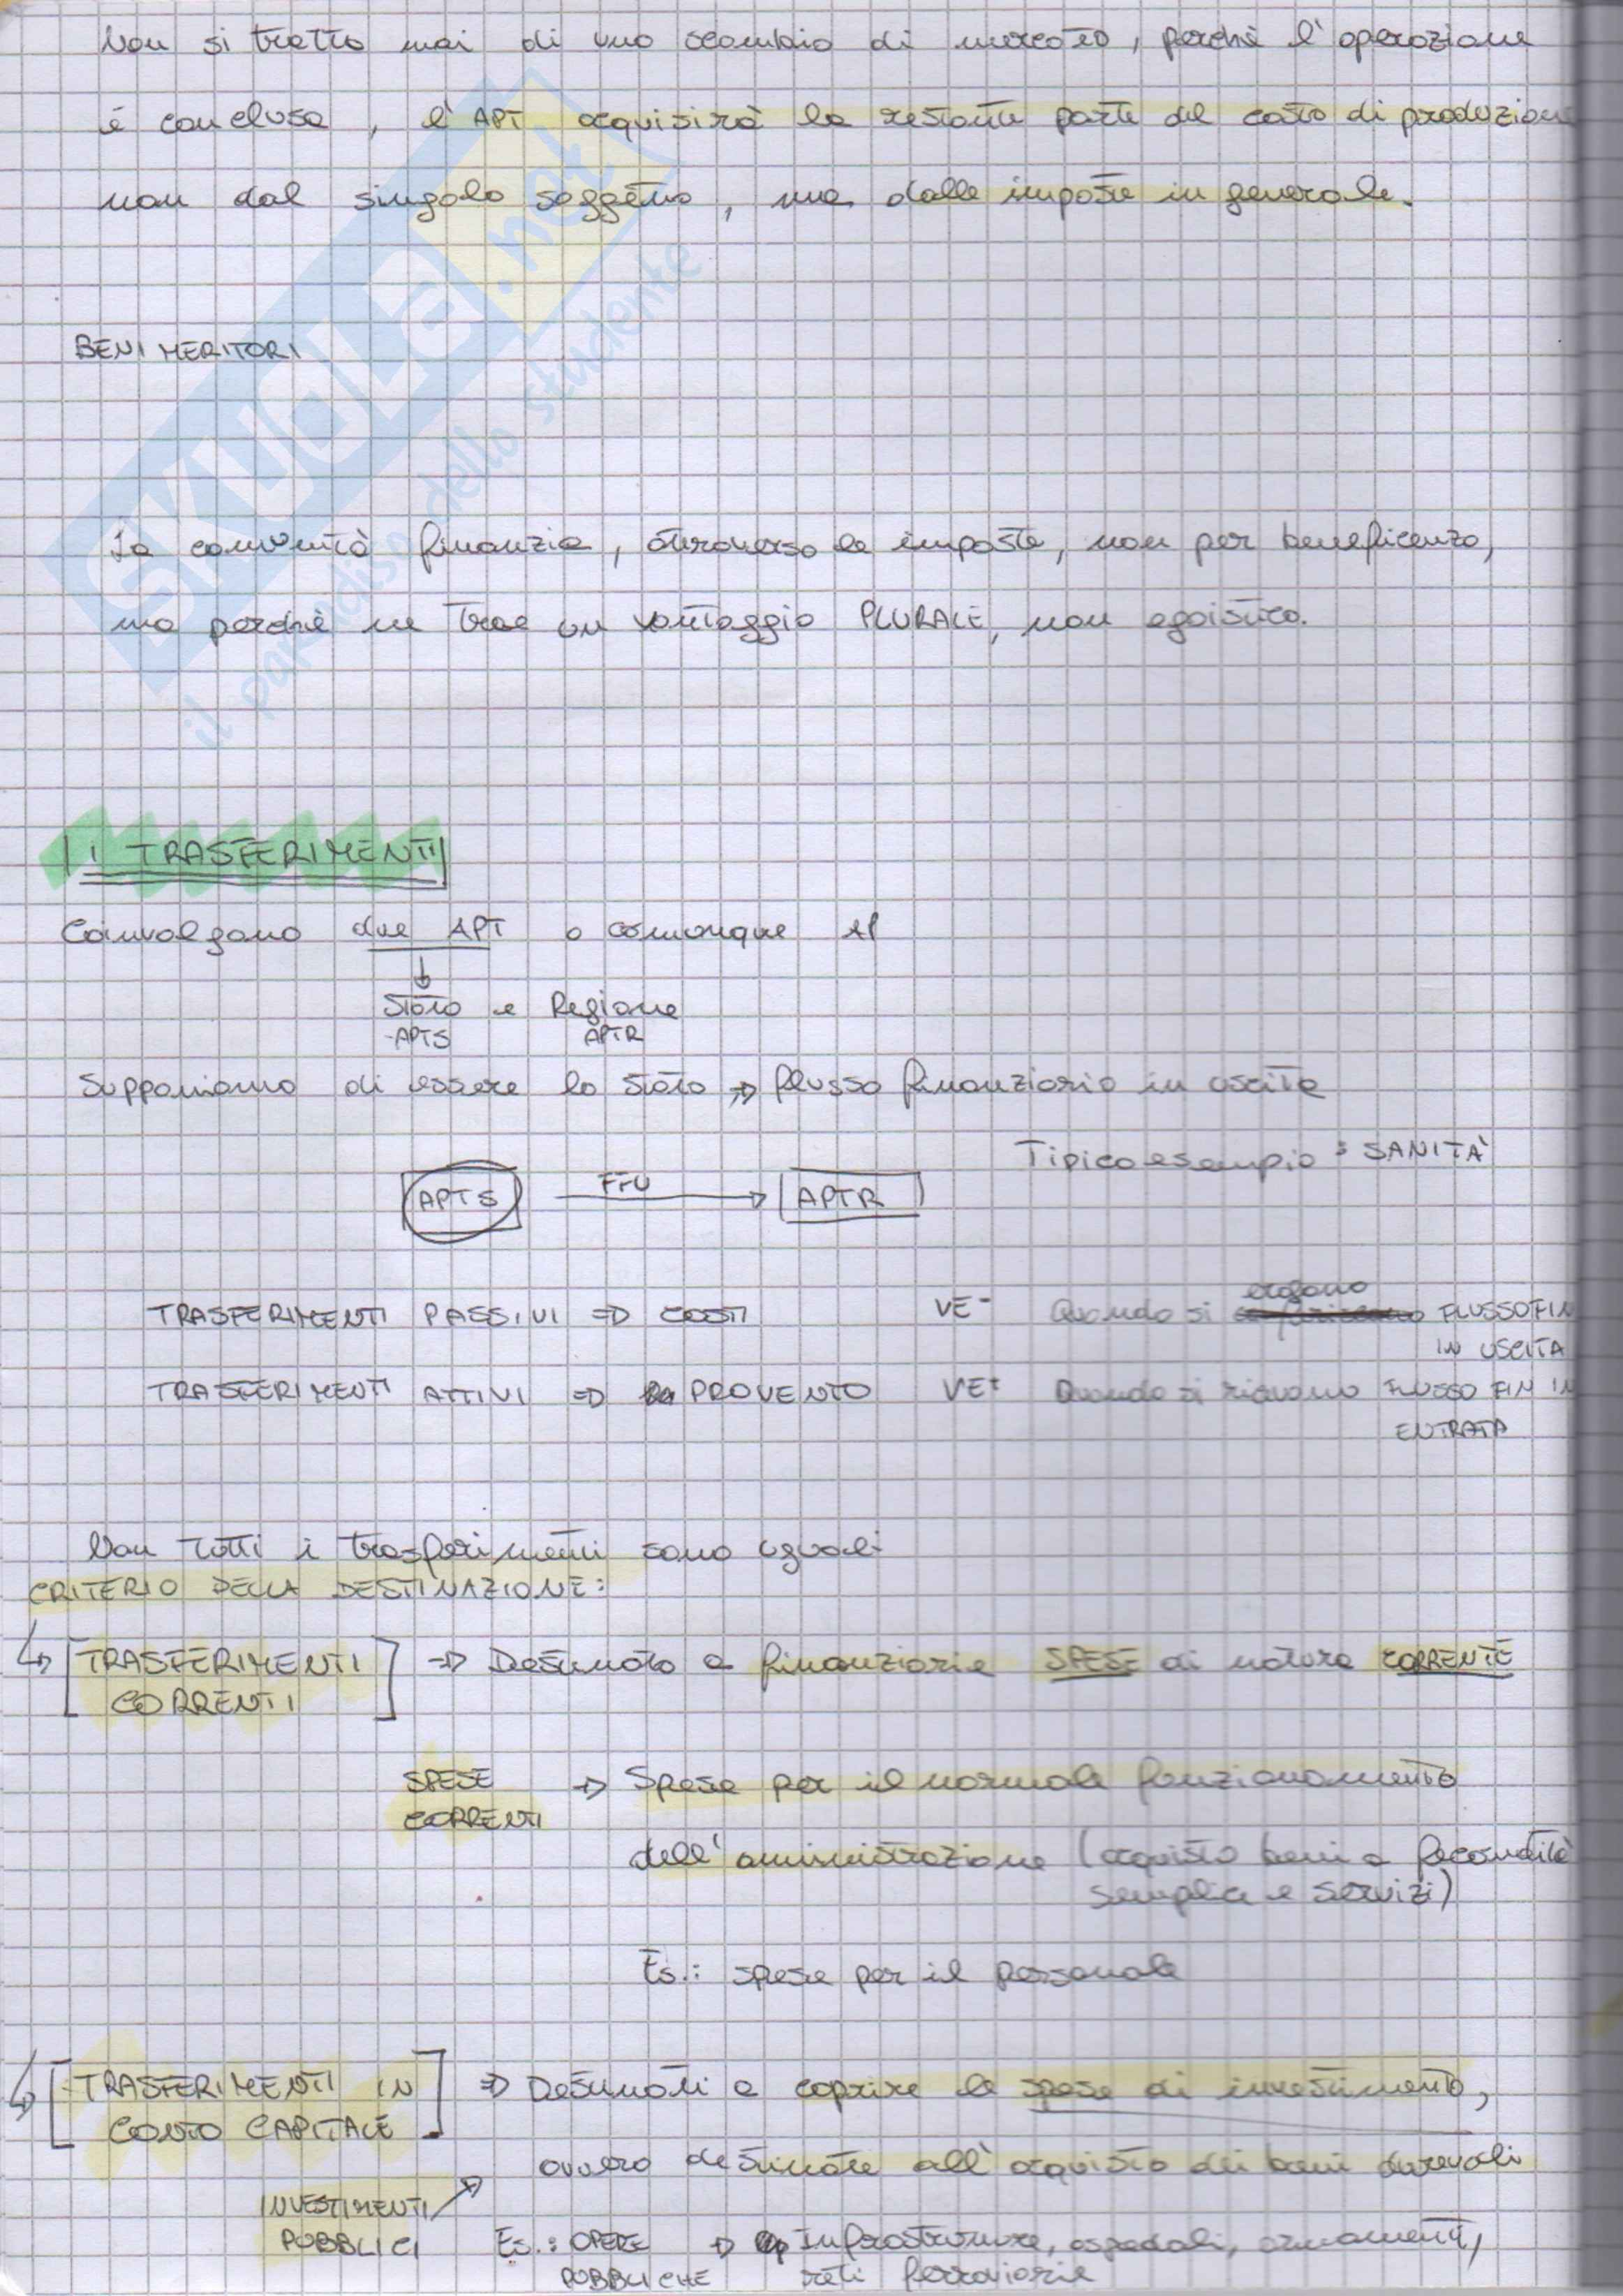 Non si tratta mai di uno scambio di mercato, perchè l'operazione
è conclusa, l'APT acquisirà la restante parte del costo di produzione
non dal singolo soggetto, ma dalle imposte in generale.
BENI MERITORI
La comunità finanzia, attraverso le imposte, non per beneficenza,
ma perchè ne trae un vantaggio PLURALE, non egoistico.
I TRASFERIMENTI
Coinvolgono due APT o comunque AP
Stato e Regione
APTS APTR
Supponiamo di essere lo Stato ⇒ flusso finanziario in uscita
Tipico esempio: SANITÀ
APTS FFU → APTR
erogano
TRASFERIMENTI PASSIVI ⇒ COSTI VE- Quando si FLUSSO FIN
IN USCITA
TRASFERIMENTI ATTIVI ⇒ PROVENTO VE+ Quando si ricevono FLUSSO FIN IN
ENTRATA
Non tutti i trasferimenti sono uguali
CRITERIO DELLA DESTINAZIONE:
↳ [TRASFERIMENTI ⇒ Destinato a finanziarie SPESE di natura CORRENTE
CORRENTI]
SPESE ⇒ Spese per il normale funzionamento
CORRENTI
dell'amministrazione (acquisto beni a fecondità
semplice e servizi)
Es.: spese per il personale
↳ [TRASFERIMENTI IN ⇒ Destinati a coprire le spese di investimento,
CONTO CAPITALE]
ovvero destinate all'acquisto dei beni durevoli
INVESTIMENTI
PUBBLICI Es.: OPERE ⇒ Infrastrutture, ospedali, armamenti,
PUBBLICHE reti ferroviarie
SKUOLA.net
il paradiso dello studente